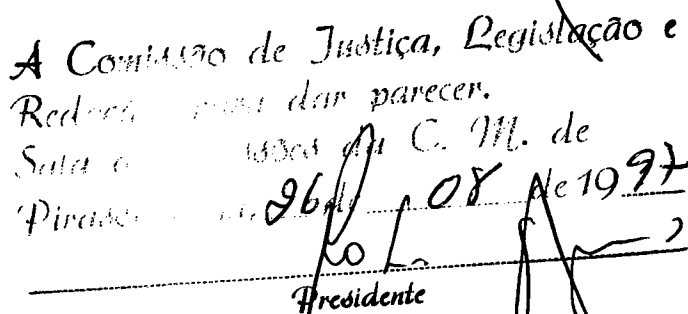 A Comissão de Justiça, Legislação e
Redação para dar parecer.
Sala das Sessões da C. M. de
26 de 08 de 1997
Presidente